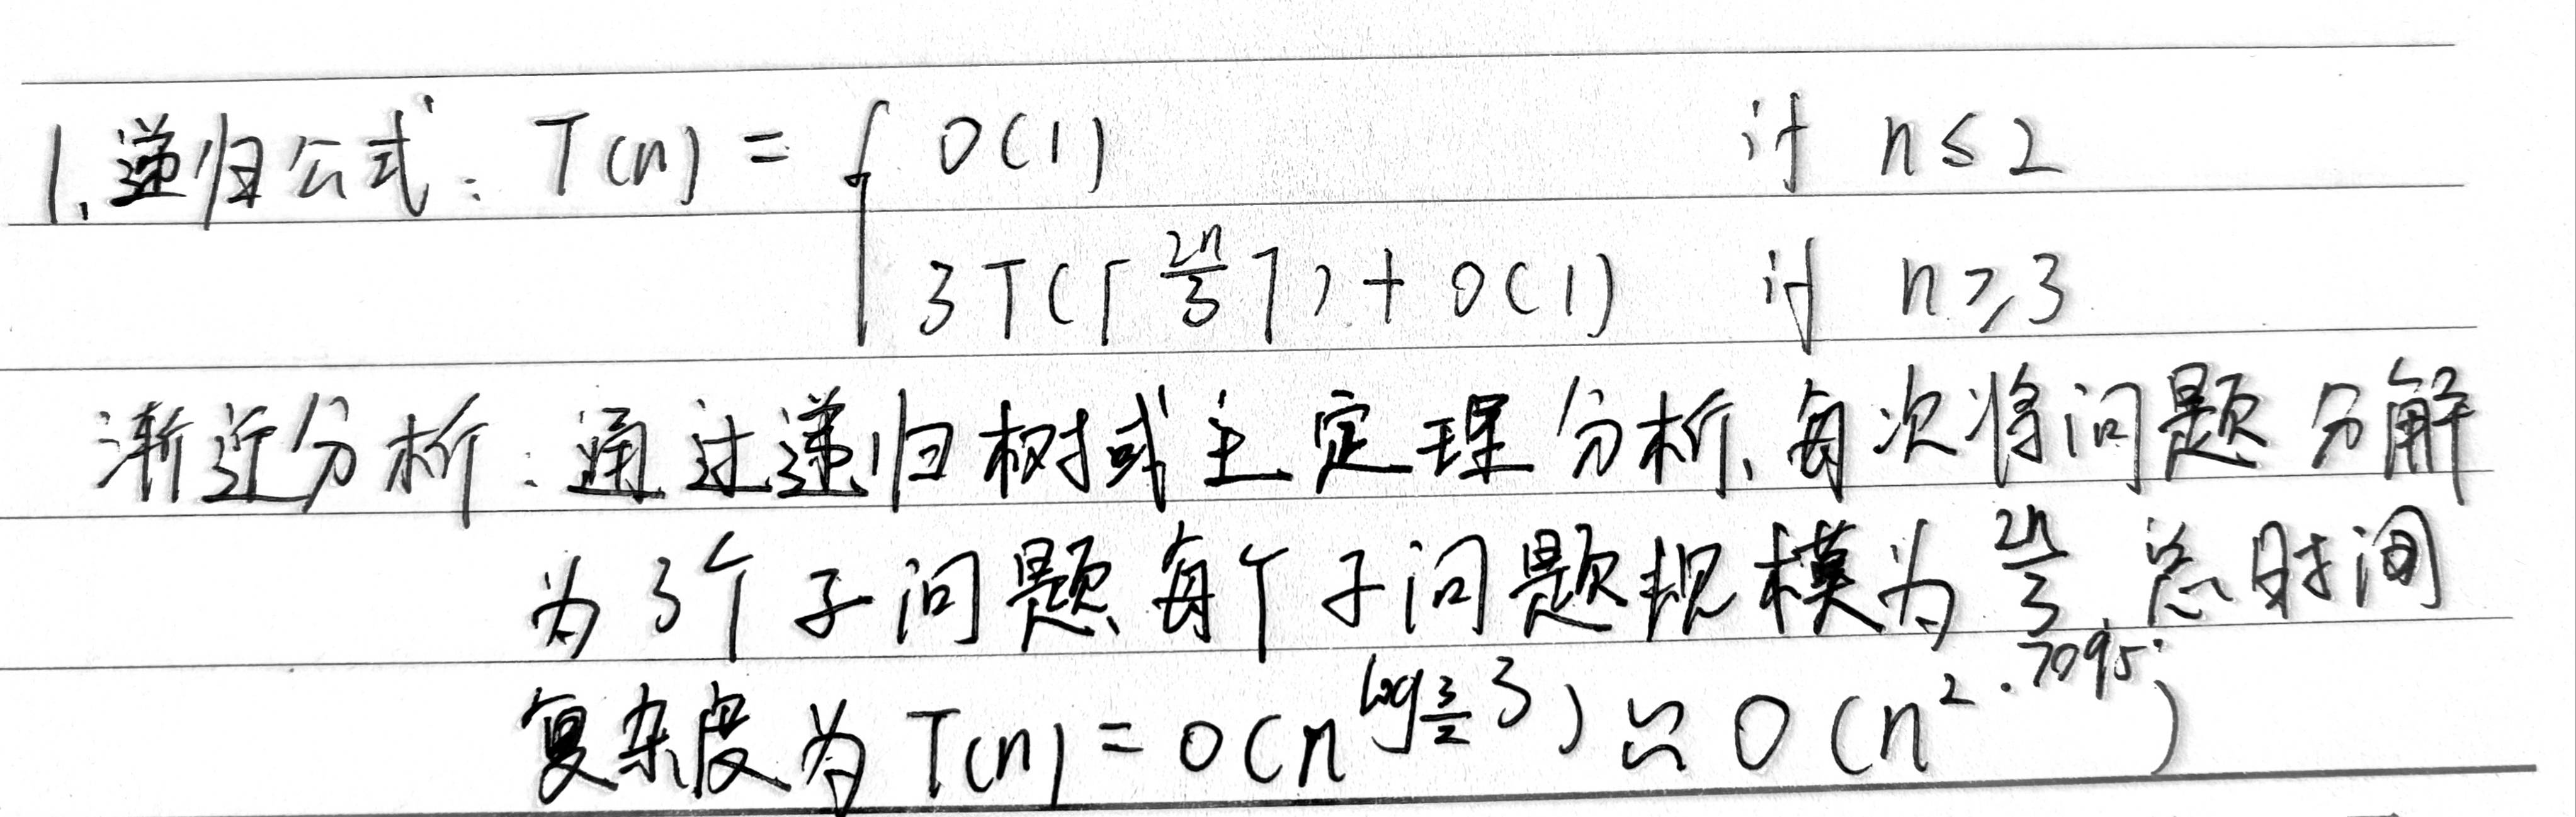 1. 递归公式: T(n) = { O(1) if n≤2
3T(⌈2n/3⌉) + O(1) if n≥3
渐近分析: 通过递归树或主定理分析, 每次将问题分解
为3个子问题, 每个子问题规模为 2n/3, 总时间
复杂度为 T(n) = O(n^(log_(3/2) 3)) ≈ O(n^2.7095)